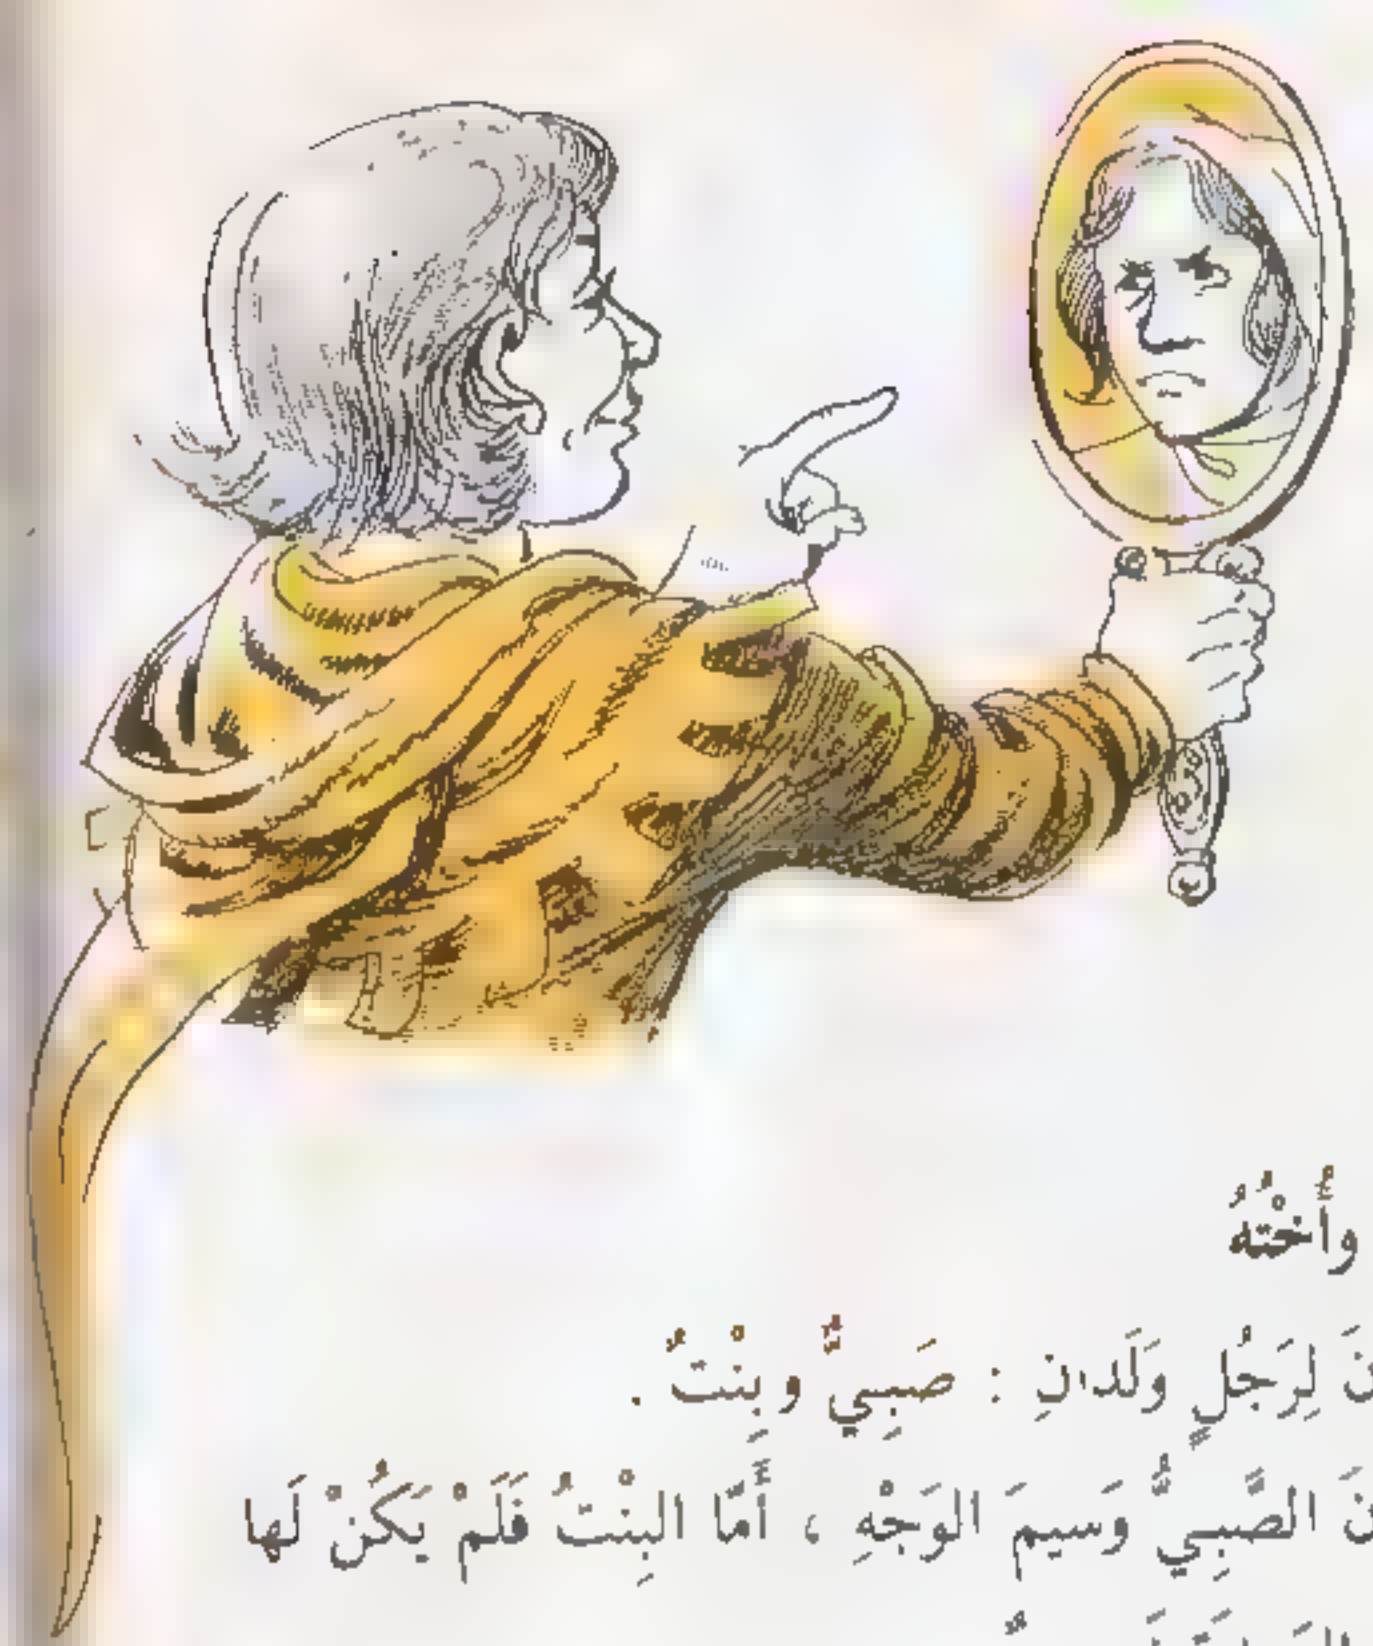 وأُخْتُهُ
نَ لِرَجُلٍ وَلَدانِ : صَبِيٌّ وبِنْتٌ .
نَ الصَّبِيُّ وَسيمَ الوَجْهِ ، أَمّا البِنْتُ فَلَمْ يَكُنْ لَها